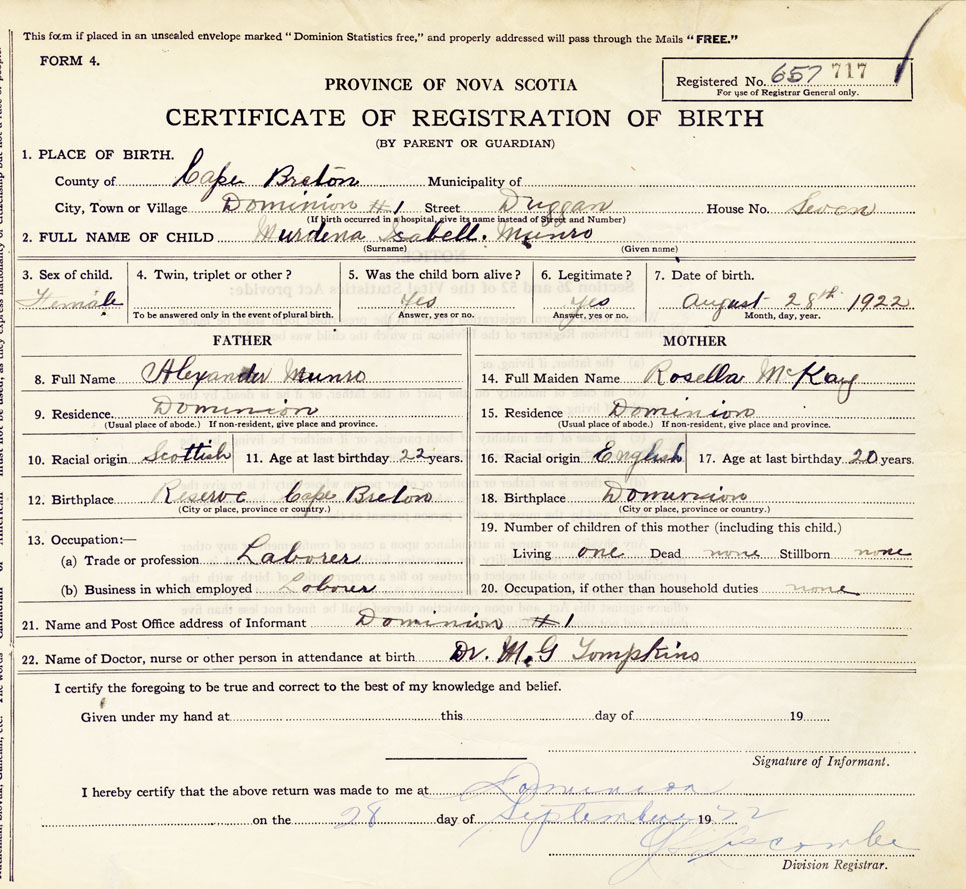 This form if placed in an unsealed envelope marked "Dominion Statistics free," and properly addressed will pass through the Mails "FREE."
FORM 4.
Registered No. 657 717
For use of Registrar General only.
PROVINCE OF NOVA SCOTIA
CERTIFICATE OF REGISTRATION OF BIRTH
(BY PARENT OR GUARDIAN)
1. PLACE OF BIRTH.
County of Cape Breton Municipality of
City, Town or Village Dominion #1 Street Duggan House No. Seven
(If birth occurred in a hospital, give its name instead of Street and Number)
2. FULL NAME OF CHILD Murdena Isabell. Munro
(Surname) (Given name)
3. Sex of child. 4. Twin, triplet or other? 5. Was the child born alive? 6. Legitimate? 7. Date of birth.
Female Yes Yes August 28th 1922
To be answered only in the event of plural birth. Answer, yes or no. Answer, yes or no. Month, day, year.
FATHER
8. Full Name Alexander Munro
9. Residence. Dominion
(Usual place of abode.) If non-resident, give place and province.
10. Racial origin Scottish 11. Age at last birthday 22 years.
12. Birthplace Reserve Cape Breton
(City or place, province or country.)
13. Occupation:—
(a) Trade or profession Laborer
(b) Business in which employed Laborer
MOTHER
14. Full Maiden Name Rosella McKay
15. Residence Dominion
(Usual place of abode.) If non-resident, give place and province.
16. Racial origin English 17. Age at last birthday 20 years.
18. Birthplace Dominion
(City or place, province or country.)
19. Number of children of this mother (including this child.)
Living one Dead none Stillborn none
20. Occupation, if other than household duties none
21. Name and Post Office address of Informant Dominion #1
22. Name of Doctor, nurse or other person in attendance at birth Dr. M.G Tompkins
I certify the foregoing to be true and correct to the best of my knowledge and belief.
Given under my hand at this day of 19
Signature of Informant.
I hereby certify that the above return was made to me at Dominion
on the 28 day of September 19 22
Division Registrar.